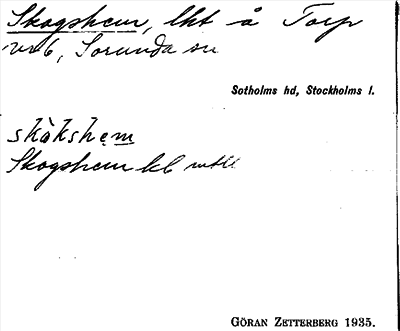 Skogshem, lht å Torp
nr 6, Sorunda sn
Sotholms hd, Stockholms l.
skòkshem
Skogshem kb
GÖRAN ZETTERBERG 1935.